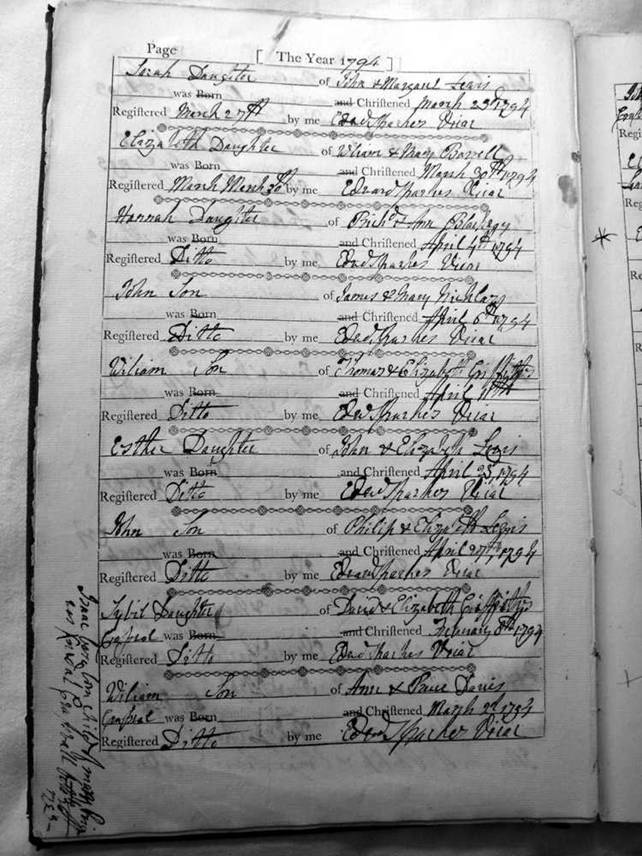 Page [ The Year 1794 ]
Sarah Daughter of John & Margaret Lewis
was Born and Chriſtened March 23d 1794
Regiſtered March 27th by me Edwd Sparkes Vicar
Elizabeth Daughter of William & Mary
was Born and Chriſtened March 30th 1794
Regiſtered March March by me Edward Sparkes Vicar
Hannah Daughter of Richd & Ann
was Born and Chriſtened April 4th 1794
Regiſtered Ditto by me Edwd Sparkes Vicar
John Son of James & Mary Nicholas
was Born and Chriſtened April 6th 1794
Regiſtered Ditto by me Edwd Sparkes Vicar
William Son of Thomas & Elizabeth Griffiths
was Born and Chriſtened April
Regiſtered Ditto by me Edwd Sparkes Vicar
Esther Daughter of John & Elizabeth Lewis
was Born and Chriſtened April 25, 1794
Regiſtered Ditto by me Edwd Sparkes Vicar
John Son of Philip & Elizabeth Lewis
was Born and Chriſtened April 27th, 1794
Regiſtered Ditto by me Edward Sparkes Vicar
Sybil Daughter of David & Elizabeth Griffiths
was Born and Chriſtened February 8th 1794
Regiſtered Ditto by me Edwd Sparkes Vicar
William Son of Ann & Davies
was Born and Chriſtened March 1794
Regiſtered Ditto by me Edwd Sparkes Vicar